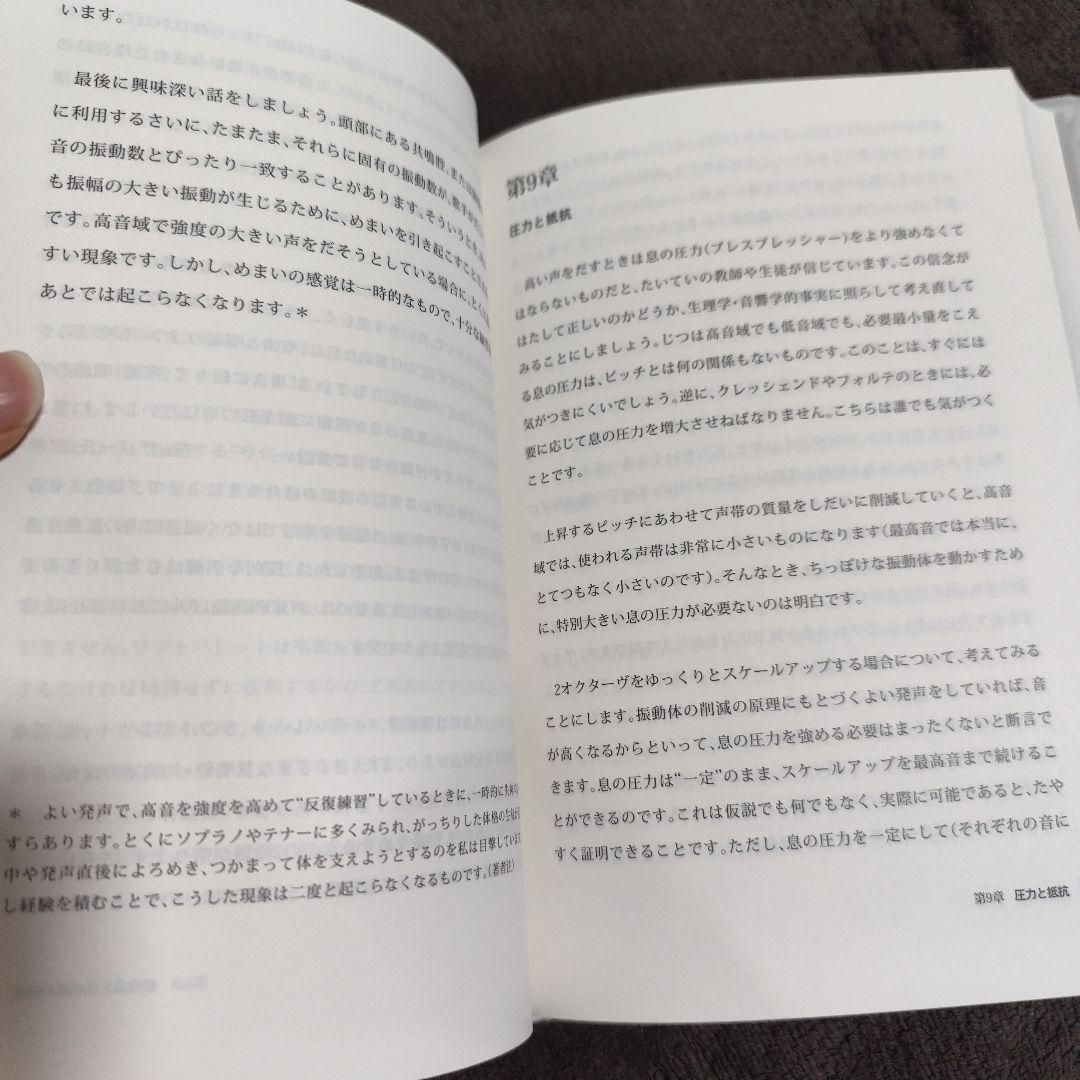 います。
最後に興味深い話をしましょう。頭部にある共鳴腔、または
に利用するさいに、たまたま、それらに固有の振動数が、歌手が
音の振動数とぴったり一致することがあります。そういうとき
も振幅の大きい振動が生じるために、めまいを引き起こすこと
です。高音域で強度の大きい声をだそうとしている場合に、とく
すい現象です。しかし、めまいの感覚は一時的なもので、十分な
あとでは起こらなくなります。＊
＊　よい発声で、高音を強度を高めて“反復練習”しているときに、一時的に失神
すらあります。とくにソプラノやテナーに多くみられ、がっちりした体格の
中や発声直後によろめき、つかまって体を支えようとするのを私は目撃しています
し経験を積むことで、こうした現象は二度と起こらなくなるものです。（著者注）
第9章
圧力と抵抗
高い声をだすときは息の圧力（ブレスプレッシャー）をより強めなくて
はならないものだと、たいていの教師や生徒が信じています。この信念が
はたして正しいのかどうか、生理学・音響学的事実に照らして考え直して
みることにしましょう。じつは高音域でも低音域でも、必要最小量をこえ
る息の圧力は、ピッチとは何の関係もないものです。このことは、すぐには
気がつきにくいでしょう。逆に、クレッシェンドやフォルテのときには、必
要に応じて息の圧力を増大させねばなりません。こちらは誰でも気がつく
ことです。
上昇するピッチにあわせて声帯の質量をしだいに削減していくと、高音
域では、使われる声帯は非常に小さいものになります（最高音では本当に、
とてつもなく小さいのです）。そんなとき、ちっぽけな振動体を動かすため
に、特別大きい息の圧力が必要ないのは明白です。
2オクターヴをゆっくりとスケールアップする場合について、考えてみる
ことにします。振動体の削減の原理にもとづくよい発声をしていれば、音
が高くなるからといって、息の圧力を強める必要はまったくないと断言で
きます。息の圧力は“一定”のまま、スケールアップを最高音まで続けるこ
とができるのです。これは仮説でも何でもなく、実際に可能であると、たや
すく証明できることです。ただし、息の圧力を一定にして（それぞれの音に
第9章　圧力と抵抗